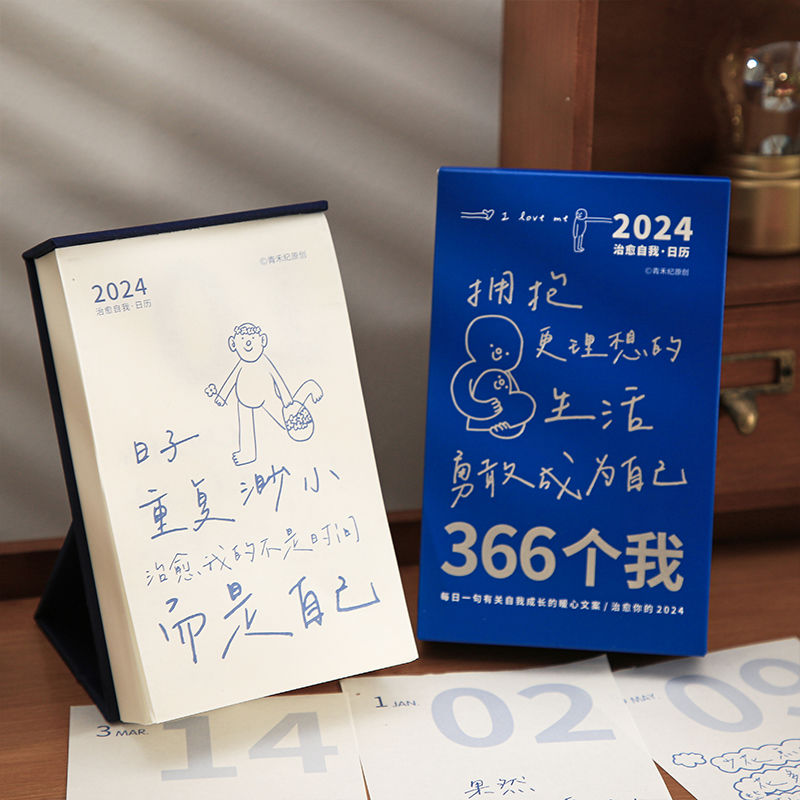 ©青禾纪原创
2024
治愈自我·日历
日子
重复渺小
治愈我的不是时间
而是自己
I love me
2024
治愈自我·日历
©青禾纪原创
拥抱
更理想的
生活
勇敢成为自己
366个我
每日一句有关自我成长的暖心文案/治愈你的2024
3 MAR.
14
1 JAN.
02
果然
MAY.
09